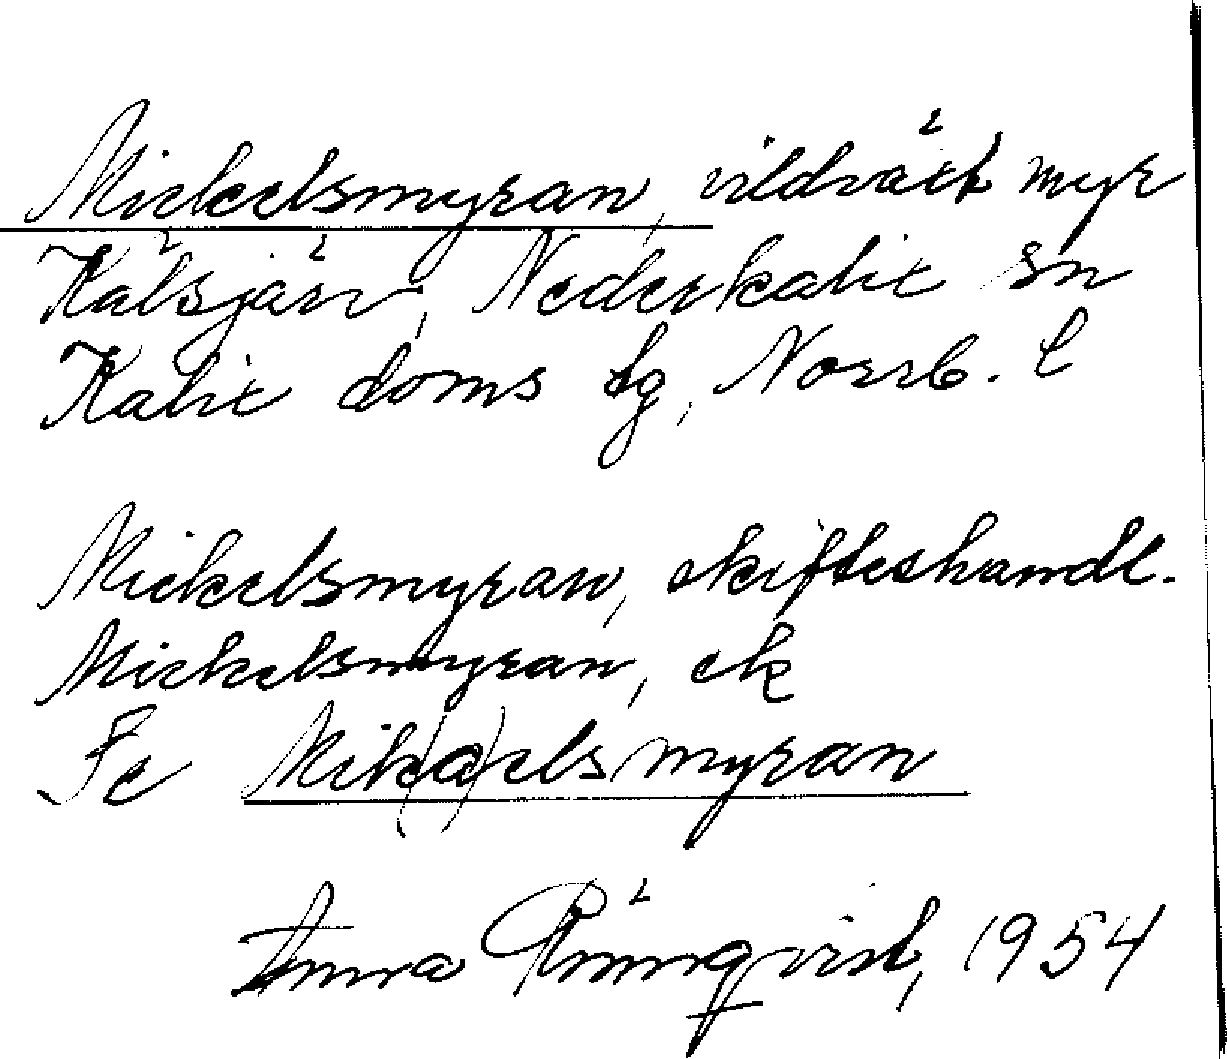 Mickelsmyran, vildväxt myr
Kälsjärv, Nederkalix sn
Kalix doms tg, Norrb. l
Mickelsmyran, skifteshandl.
Mickelsmyran, ek
Fe Mik(a)elsmyran
Anna Rönnqvist, 1954